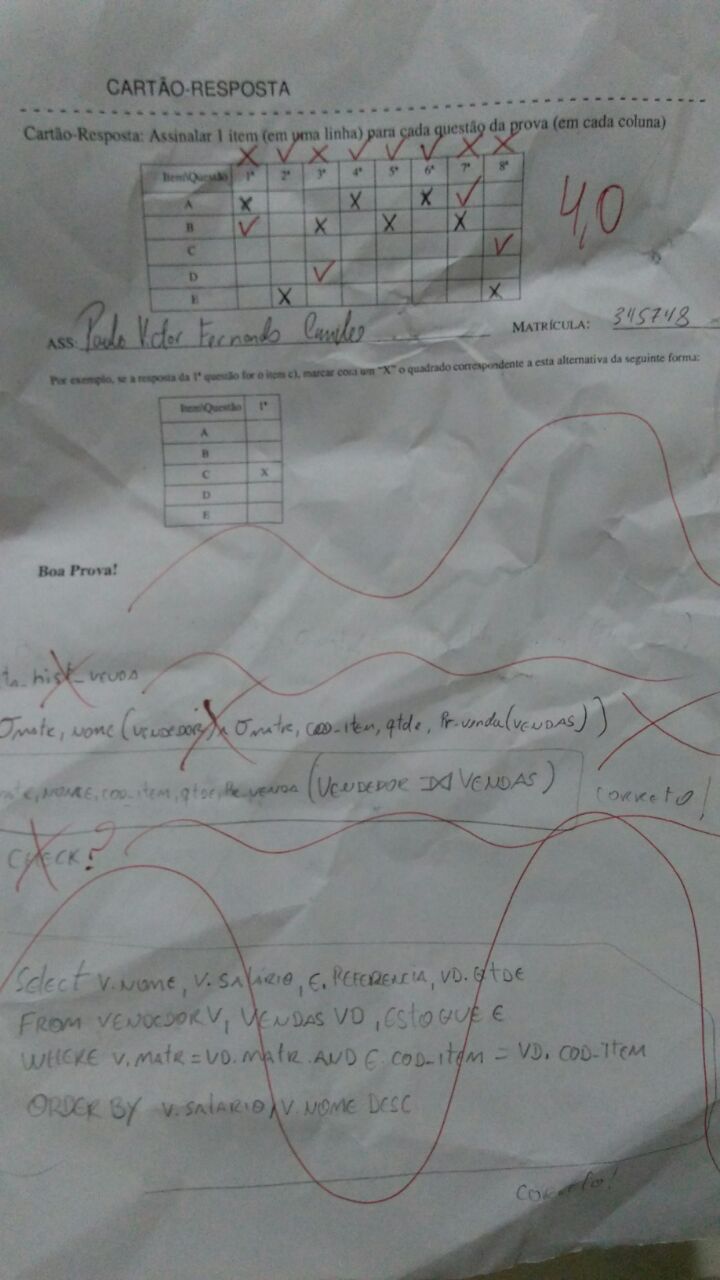 CARTÃO-RESPOSTA
Cartão-Resposta: Assinalar 1 item (em uma linha) para cada questão da prova (em cada coluna)
Item\Questão 1ª 2ª 3ª 4ª 5ª 6ª 7ª 8ª
A X X X
B X X X
C
D
E X X
4,0
ASS: Paulo Victor Fernando
MATRÍCULA: 345748
Por exemplo, se a resposta da 1ª questão for o item c), marcar com um "X" o quadrado correspondente a esta alternativa da seguinte forma:
Item\Questão 1ª
A
B
C X
D
E
Boa Prova!
hist_venda
σmatr, nome (VENDEDOR) σmatr, cod-item, qtde, Pr-venda (VENDAS))
NOME, cod-item, qtde, Pr-VENDA (VENDEDOR ⋈ VENDAS)
CORRETO!
CHECK?
Select V.NOME, V.SALÁRIO, E.REFERENCIA, VD.QTDE
FROM VENDEDOR V, VENDAS VD, ESTOQUE E
WHERE V.MATR = VD.MATR AND E.COD-ITEM = VD.COD-ITEM
ORDER BY V.SALARIO, V.NOME DESC
Correto!